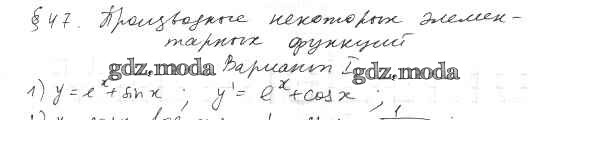 § 47. Производные некоторых элемен-
тарных функций
gdz.moda Вариант I gdz.moda
1) y = e^x + sin x ; y' = e^x + cos x ;